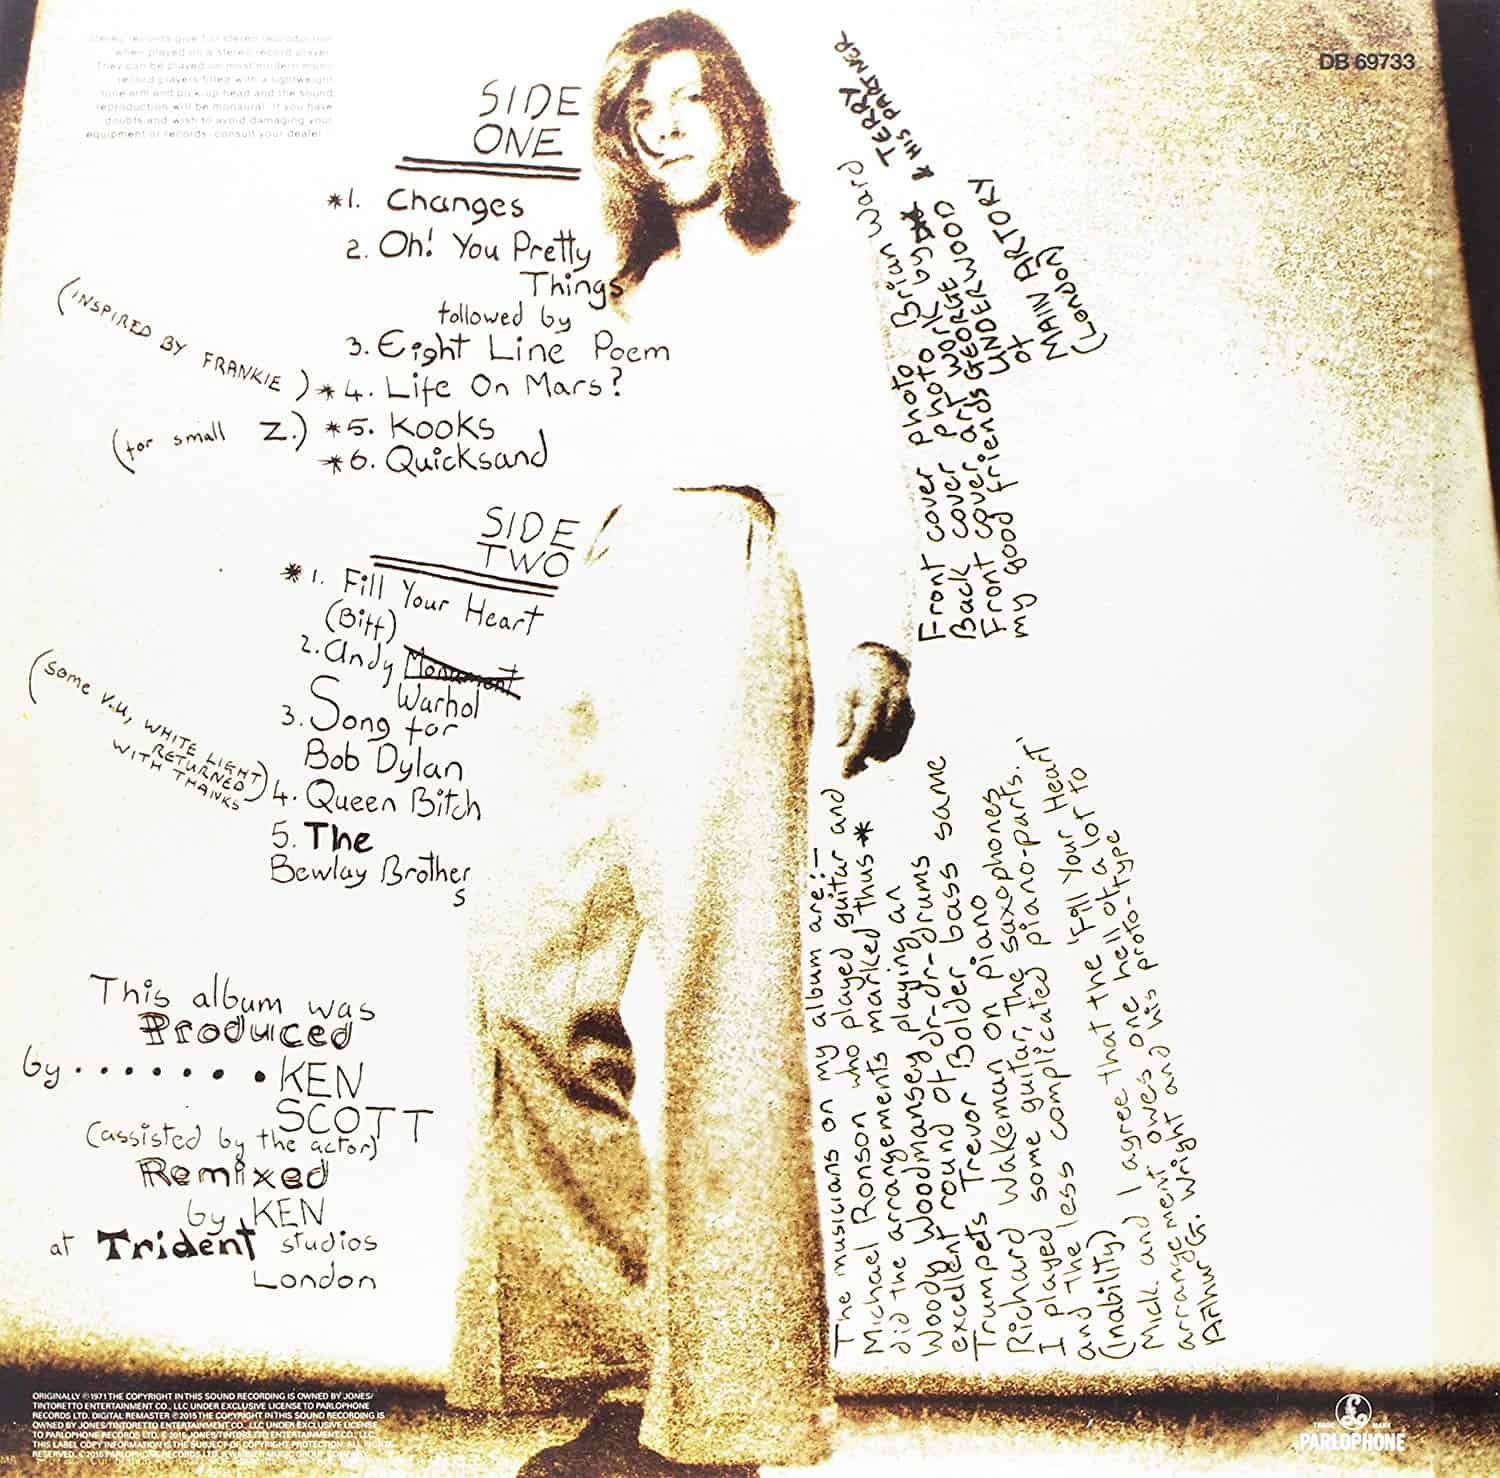 Stereo records give full stereo reproduction
when played on a stereo record player.
They can be played on most modern mono
record players fitted with a lightweight
tone arm and pick-up head and the sound
reproduction will be monaural. If you have
doubts and wish to avoid damaging your
equipment or records, consult your dealer.
DB 69733
SIDE
ONE
*1. Changes
2. Oh! You Pretty
Things
followed by
3. Eight Line Poem
(INSPIRED BY FRANKIE)
*4. Life On Mars?
(for small Z.)
*5. Kooks
*6. Quicksand
SIDE
TWO
*1. Fill Your Heart
(Biff)
2. Andy Monument
Warhol
3. Song for
Bob Dylan
(some V.U, WHITE LIGHT
RETURNED
WITH THANKS)
4. Queen Bitch
5. The
Bewlay Brother
s
This album was
Produced
by....... KEN
SCOTT
(assisted by the actor)
Remixed
by KEN
at Trident studios
London
Front cover photo Brian Ward
Back cover photo by
TERRY
& HIS PARTNER
Front cover art work GEORGE
my good friends UNDERWOOD
of
MAIN ARTORY
(London)
The musicians on my album are:-
Michael Ronson who played guitar and
did the arrangements marked thus *
Woody Woodmansey playing an
excellent round of dr-dr-drums
Trumpets Trevor Bolder bass same
Richard Wakeman on piano
I played some guitar, the saxophones
and the less complicated piano-parts.
(inability)
Mick and I agree that the 'Fill Your Heart'
arrangement owes one hell of a lot to
Arthur G. Wright and his proto-type
ORIGINALLY ℗ 1971 THE COPYRIGHT IN THIS SOUND RECORDING IS OWNED BY JONES/
TINTORETTO ENTERTAINMENT CO., LLC UNDER EXCLUSIVE LICENSE TO PARLOPHONE
RECORDS LTD. DIGITAL REMASTER ℗ 2015 THE COPYRIGHT IN THIS SOUND RECORDING IS
OWNED BY JONES/TINTORETTO ENTERTAINMENT CO., LLC UNDER EXCLUSIVE LICENSE
TO PARLOPHONE RECORDS LTD. © 2015 JONES/TINTORETTO ENTERTAINMENT CO., LLC.
THIS LABEL COPY INFORMATION IS THE SUBJECT OF COPYRIGHT PROTECTION. ALL RIGHTS
RESERVED. © 2015 PARLOPHONE RECORDS LTD, A WARNER MUSIC GROUP COMPANY
TRADE MARK
PARLOPHONE